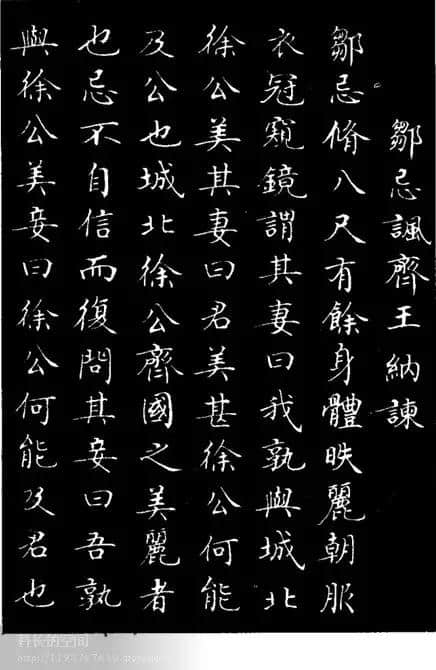 鄒忌諷齊王納諫
鄒忌脩八尺有餘身體昳麗朝服
衣冠窺鏡謂其妻曰我孰與城北
徐公美其妻曰君美甚徐公何能
及公也城北徐公齊國之美麗者
也忌不自信而復問其妾曰吾孰
與徐公美妾曰徐公何能及君也
长的空间